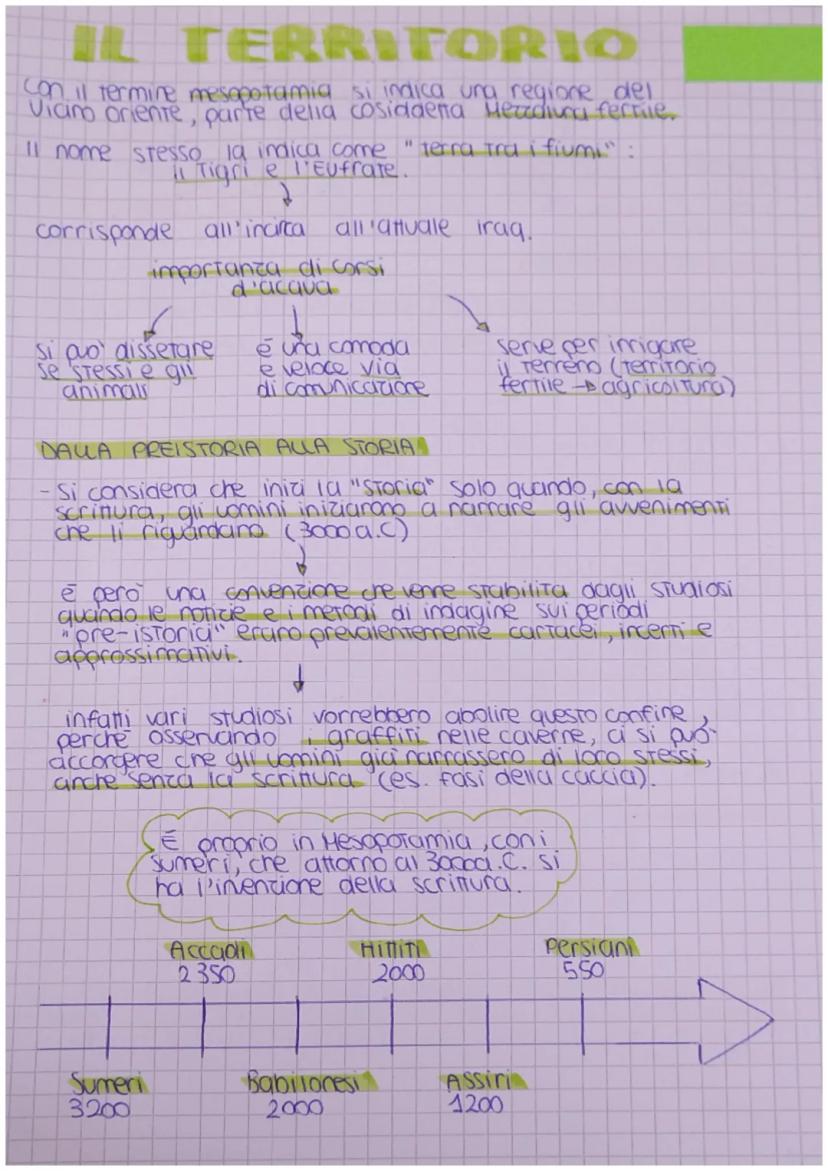 IL TERRITORIO
Con il termine mesopotamia si indica una regione del
Vicino Oriente, parte della cosiddetta Mezzaluna fertile.
Il nome stesso la indica come "terra tra i fiumi":
il Tigri e l'Eufrate.
corrisponde all'incirca all'attuale iraq.
importanza di corsi
d'acqua
si può dissetare
se stessi e gli
animali
è una comoda
e veloce via
di comunicazione
serve per irrigare
il terreno (territorio
fertile → agricoltura)
DALLA PREISTORIA ALLA STORIA
- Si considera che inizi la "storia" solo quando, con la
scrittura, gli uomini iniziarono a narrare gli avvenimenti
che li riguardano (3000 a.C)
è però una convenzione che venne stabilita dagli studiosi
quando le notizie e i metodi di indagine sui periodi
"pre-istorici" erano prevalentemente cartacei, incerti e
approssimativi.
infatti vari studiosi vorrebbero abolire questo confine,
perché osservando i graffiti nelle caverne, ci si può
accorgere che gli uomini già narrassero di loro stessi,
anche senza la scrittura (es. fasi della caccia).
È proprio in Mesopotamia, con i
sumeri, che attorno al 3000 a.C. si
ha l'invenzione della scrittura.
Accadi Hittiti Persiani
2350 2000 550
Sumeri Babilonesi Assiri
3200 2000 1200